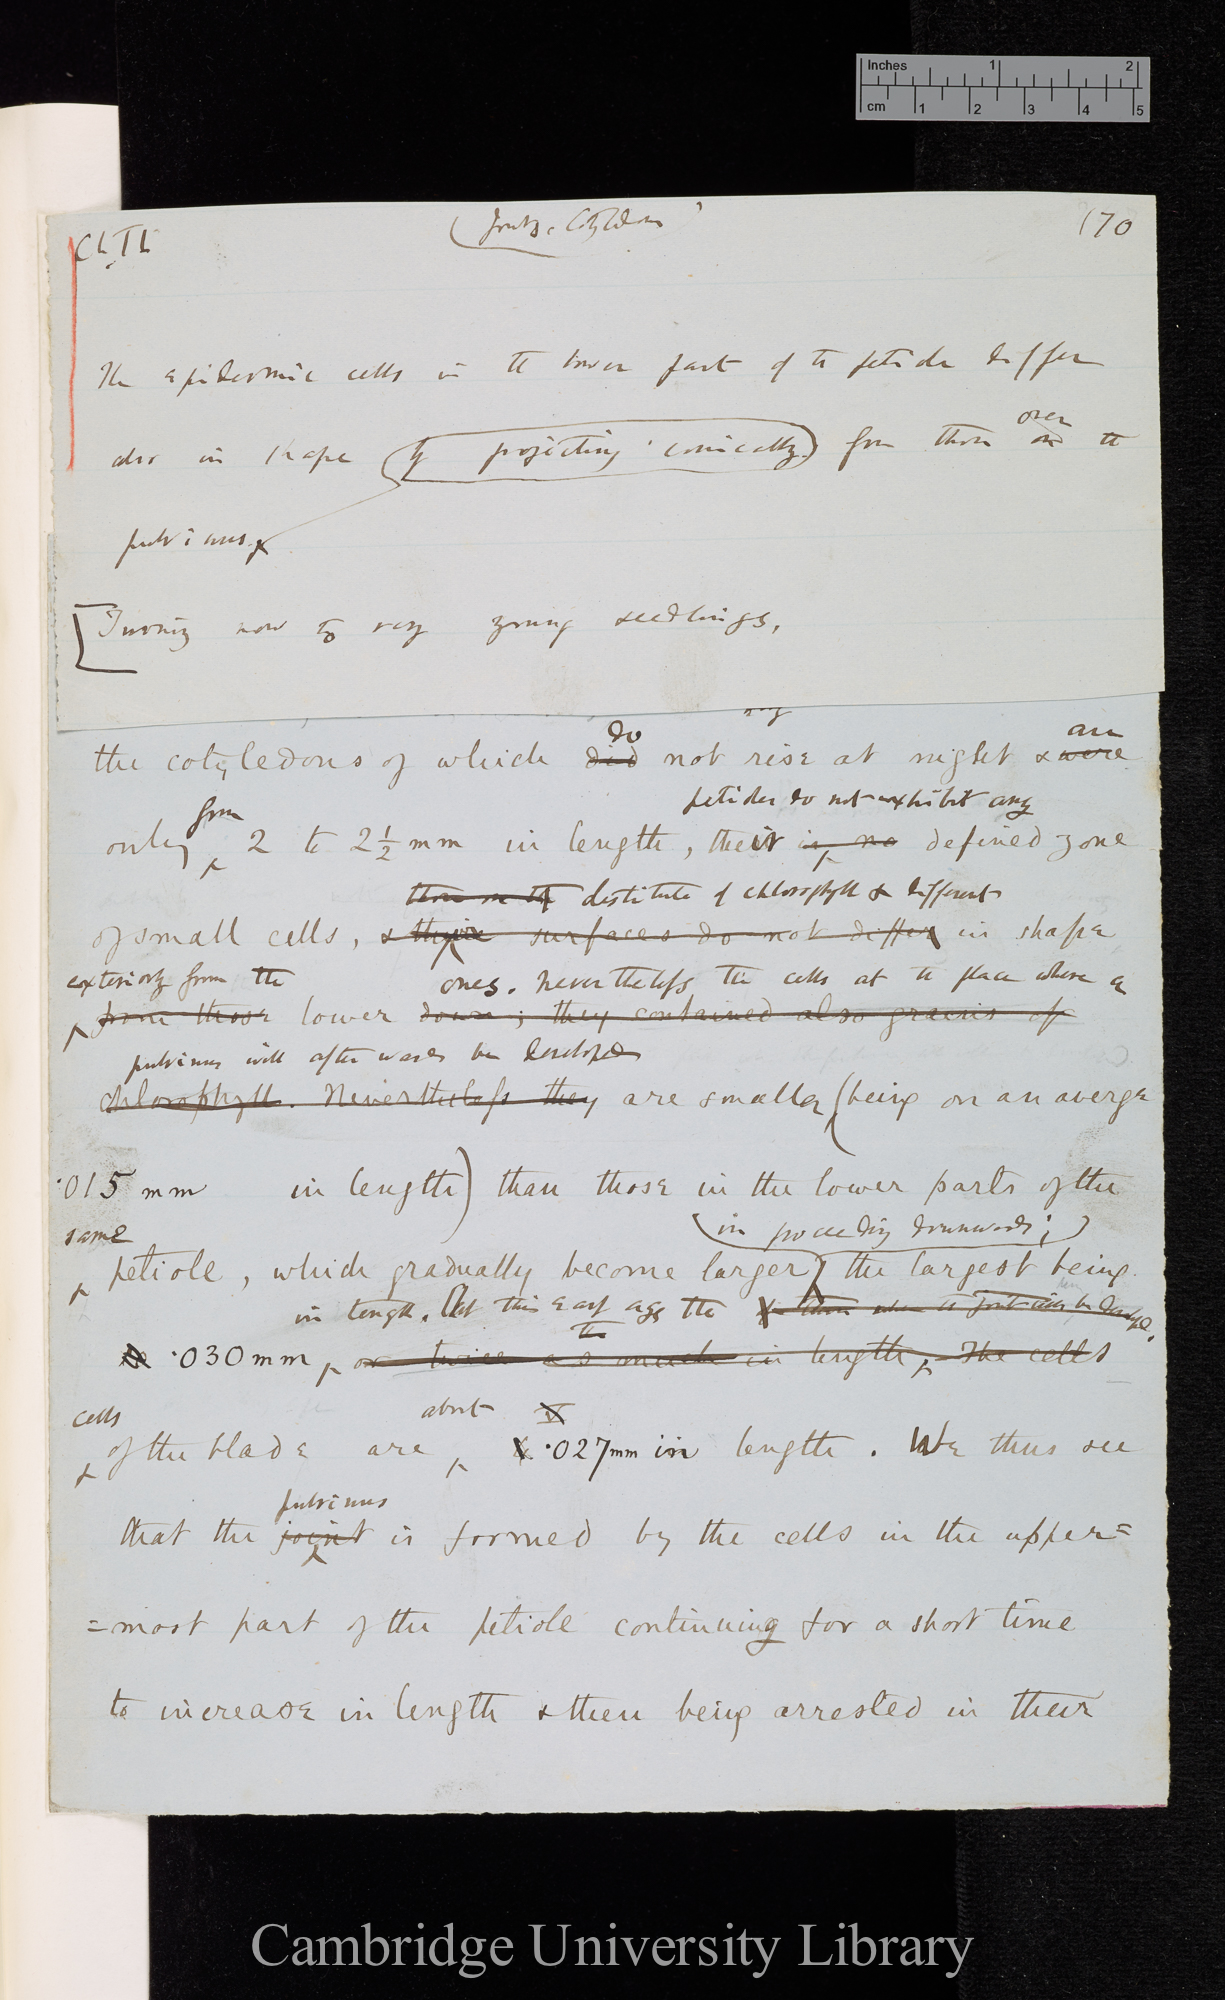 Inches 1 2
cm 1 2 3 4 5
Ch. II
(Joints. Cotyledons)
(70
The epidermic cells in the lower part of the petiole differ
also in shape (by projecting conically) from those over on the
pulvinus.
[Turning now to very young seedlings,
do
are
the cotyledons of which did not rise at night & were
from
petioles do not exhibit any
only 2 to 2½ mm in length, their is no defined zone
destitute of chlorophyll & different
of small cells, & their surfaces do not differ in shape
exteriorly from the
ones. Nevertheless the cells at the place where a
from those lower down; they contained also grains of
pulvinus will afterwards be developed
chlorophyll. Nevertheless they are smaller (being on an averge
·015 mm in length) than those in the lower parts of the
same
(in proceeding downwards;)
petiole, which gradually become larger, the largest being
in length. At this early age the
the
·030 mm, or twice as much in length, The cells
cells
about
of the blade are ·027 mm in length. We thus see
pulvinus
that the joint is formed by the cells in the upper=
=most part of the petiole continuing for a short time
to increase in length & then being arrested in their
Cambridge University Library